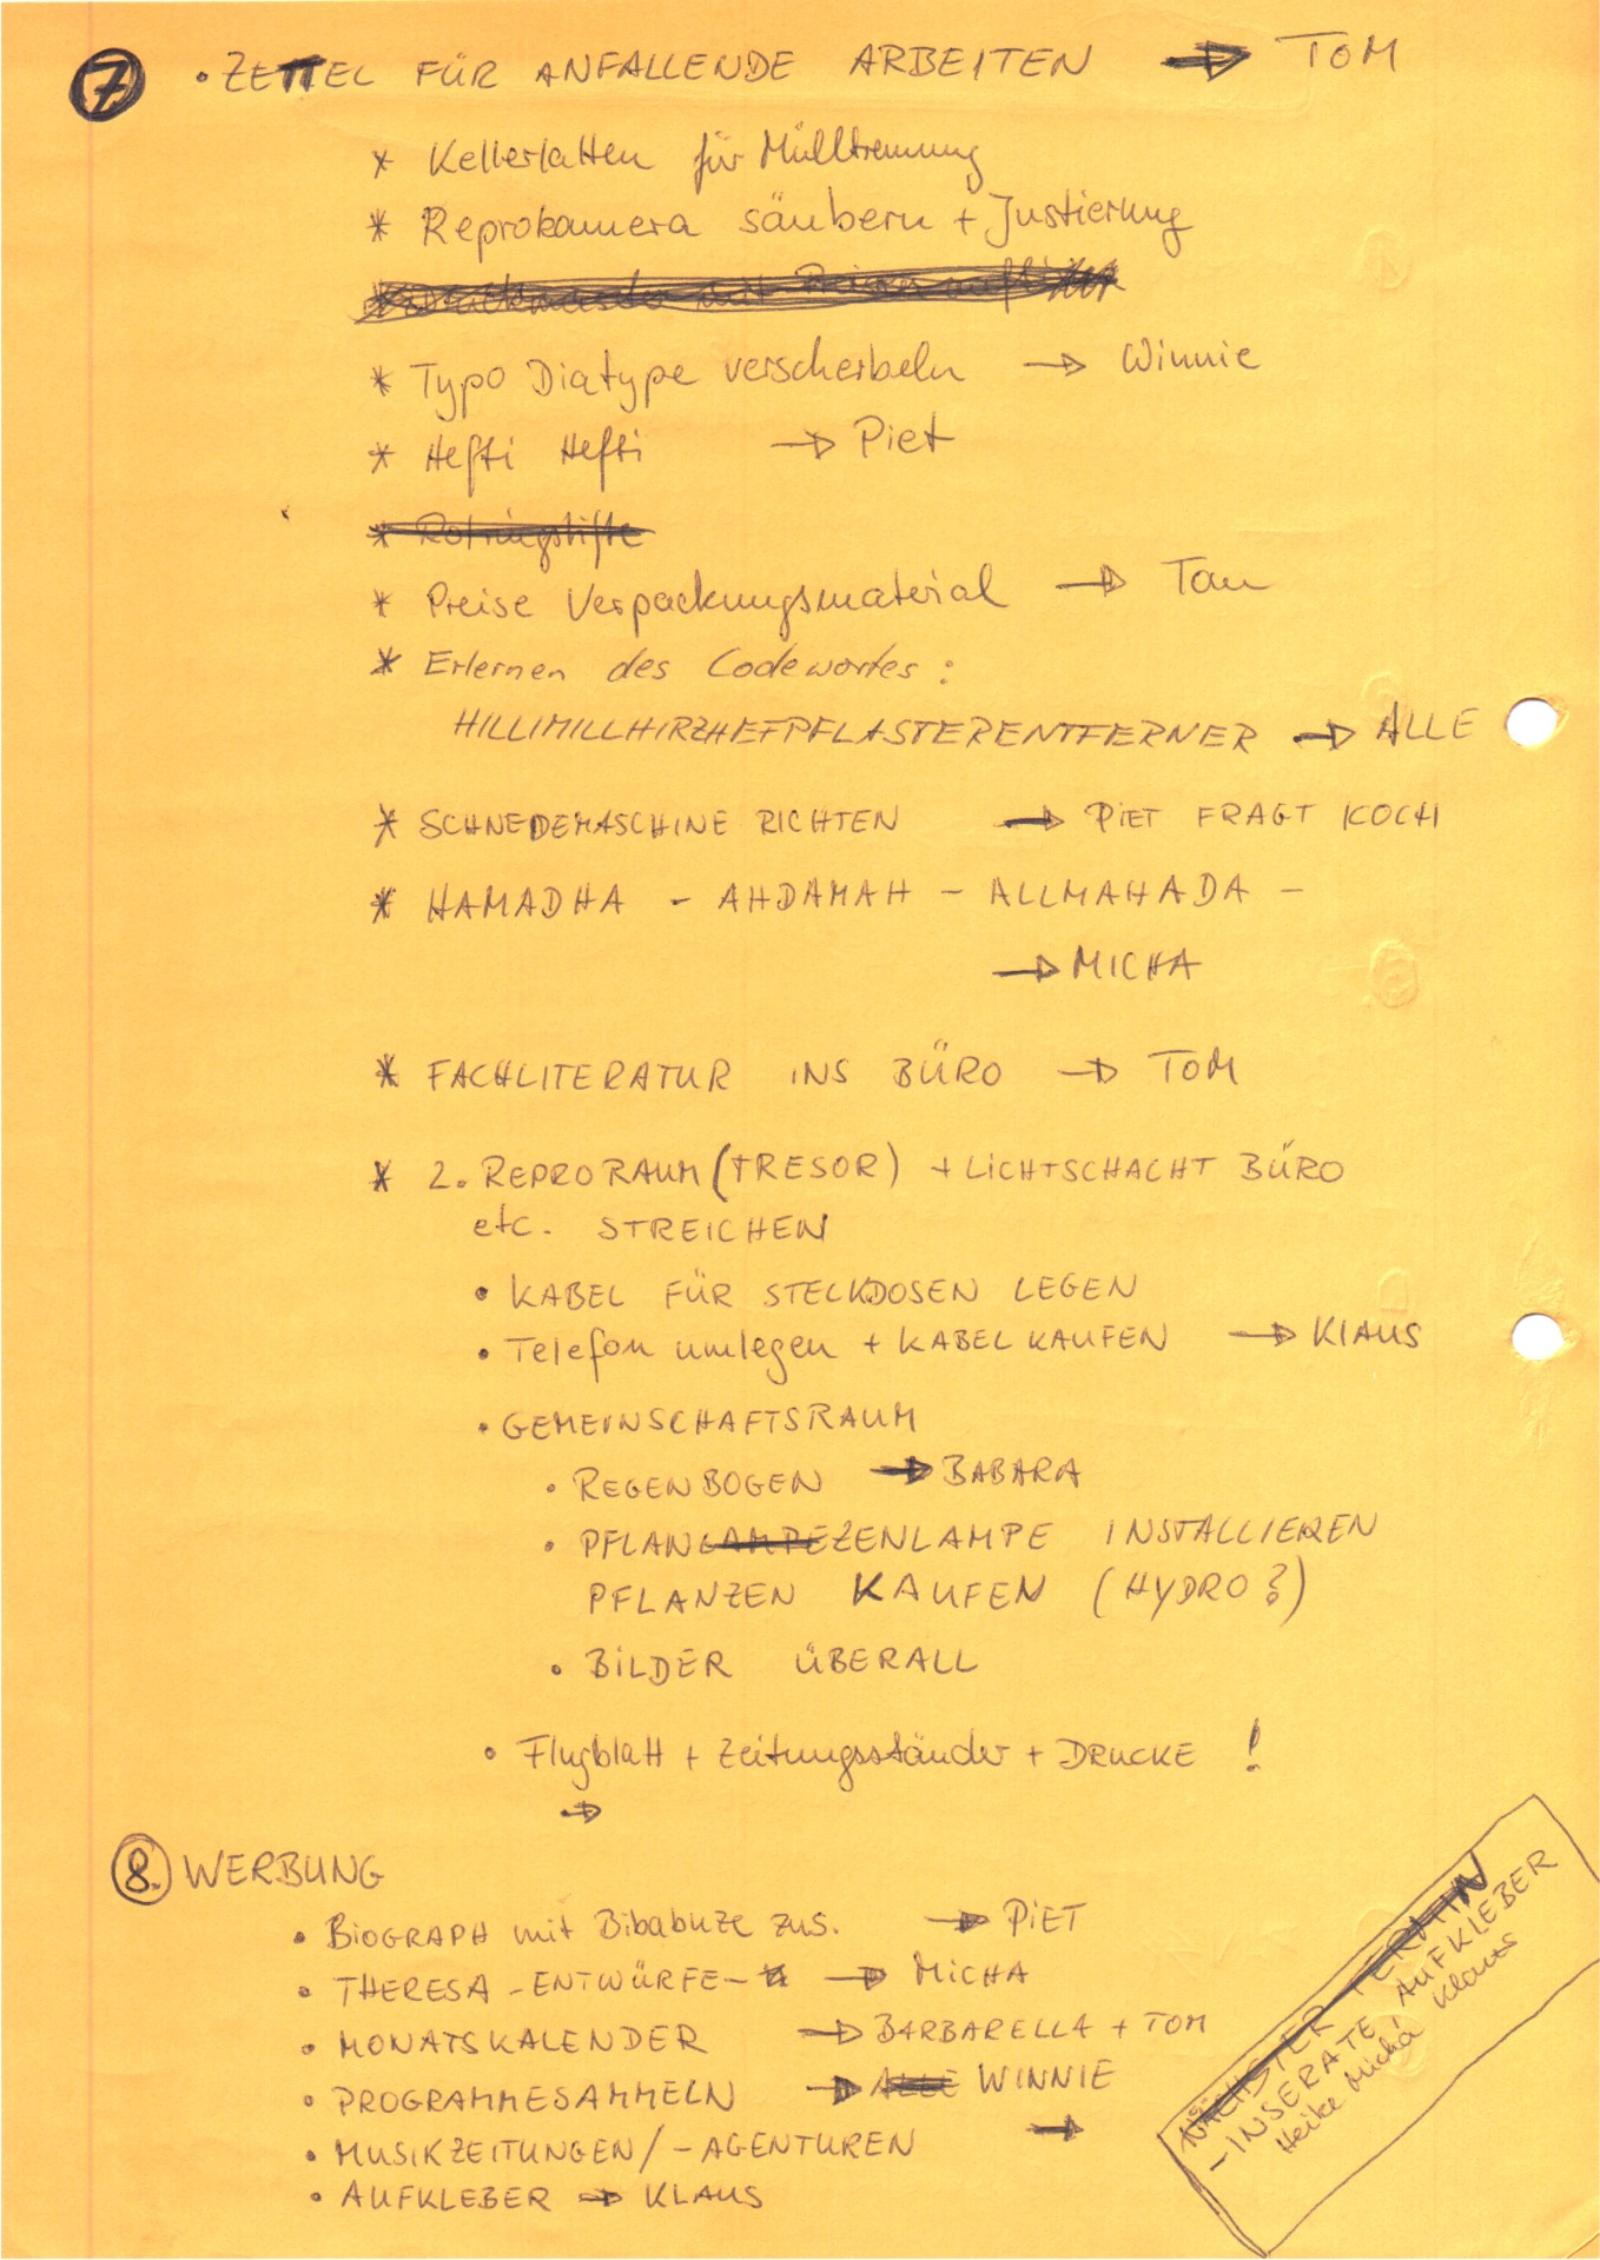 7 • ZETTEL FÜR ANFALLENDE ARBEITEN → TOM
* Kellerlatten für Mülltrennung
* Reprokamera säubern + Justierung
* Typo Diatype verscherbeln → Winnie
* Hefti Hefti → Piet
* Rotringstifte
* Preise Verpackungsmaterial → Tom
* Erlernen des Codewortes:
HILLIMILLHIRZHEFPFLASTERENTFERNER → ALLE
* SCHNEDEMASCHINE RICHTEN → PIET FRAGT KOCH
* HAMADHA - AHDAMAH - ALLMAHADA -
→ MICHA
* FACHLITERATUR INS BÜRO → TOM
* 2. REPRORAUM (TRESOR) + LICHTSCHACHT BÜRO
etc. STREICHEN
• KABEL FÜR STECKDOSEN LEGEN
• Telefon umlegen + KABEL KAUFEN → KLAUS
• GEMEINSCHAFTSRAUM
• REGENBOGEN → BABARA
• PFLANLAMPEZENLAMPE INSTALLIEREN
PFLANZEN KAUFEN (HYDRO?)
• BILDER ÜBERALL
• Flugblatt + Zeitungsständer + DRUCKE !
→
8. WERBUNG
• BIOGRAPH mit Bibabuze zus. → PIET
• THERESA - ENTWÜRFE - → MICHA
• MONATSKALENDER → BARBARELLA + TOM
• PROGRAMMESAMMELN → ALLE WINNIE
• MUSIKZEITUNGEN / - AGENTUREN →
• AUFKLEBER → KLAUS
NÄCHSTER TERMIN
- INSERATE, AUFKLEBER
Heike Micha Klaus